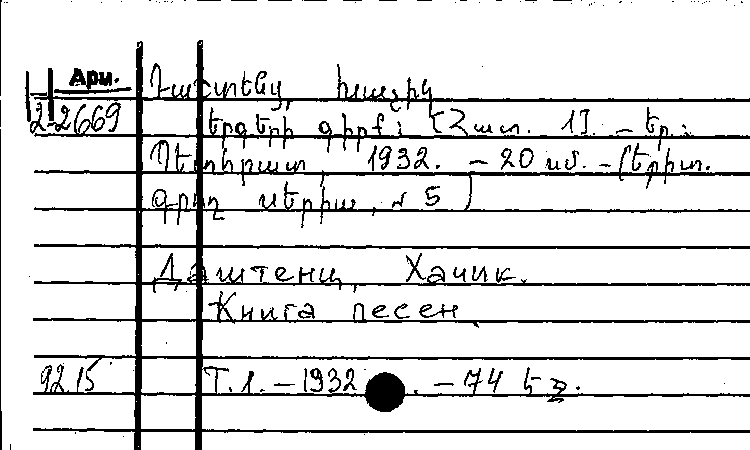 Арм.
Դաշտենց, Խաչիկ
2-2669
Երգերի գիրք: [Հատ. 1]. – Եր.:
Պետհրատ, 1932. – 20 սմ. – (Երիտ.
գրող սերիա, № 5)
Даштенц, Хачик.
Книга песен.
9215 Т. 1. – 1932 . – 74 էջ.